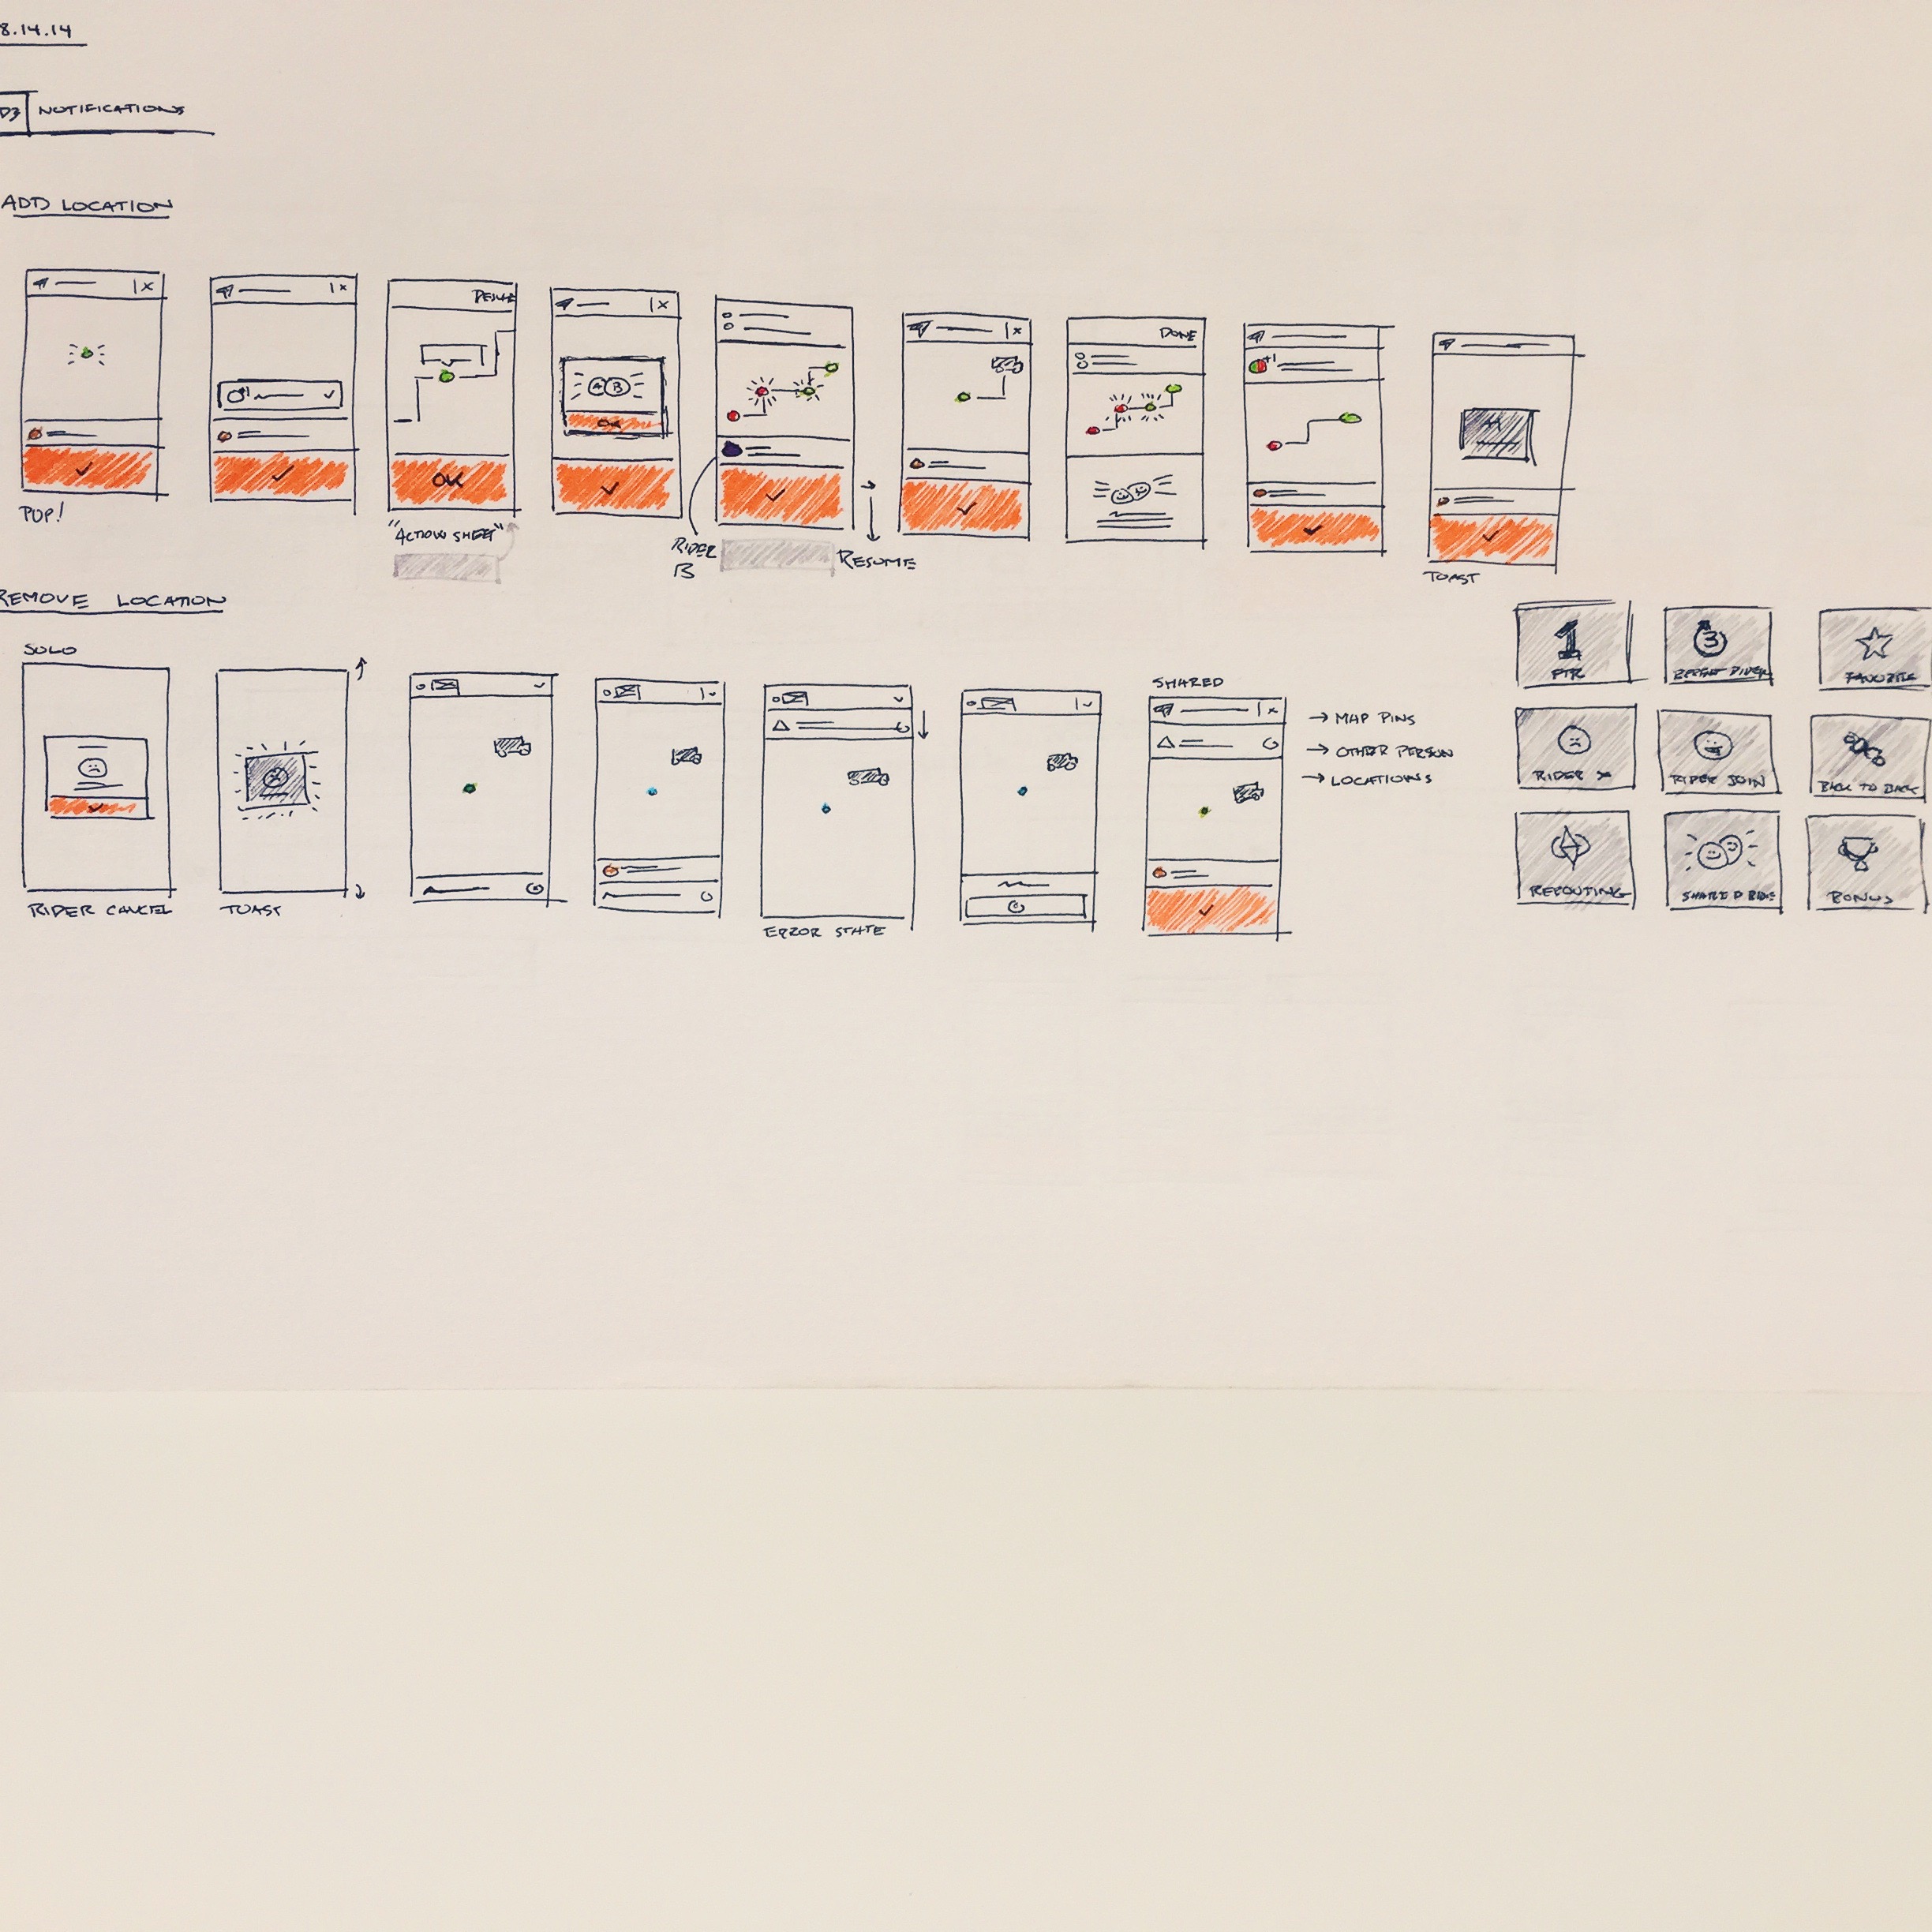 8.14.14
D3 NOTIFICATIONS
ADD LOCATION
DONE
A B
OK
OK
POP!
"ACTION SHEET"
RIDER
B
RESUME
+1
TOAST
REMOVE LOCATION
SOLO
RIDER CANCEL
TOAST
ERROR STATE
SHARED
→ MAP PINS
→ OTHER PERSON
→ LOCATIONS
1
3
FAVORITE
RIDER X
RIDER JOIN
BACK TO BACK
REROUTING
SHARED RIDE
BONUS